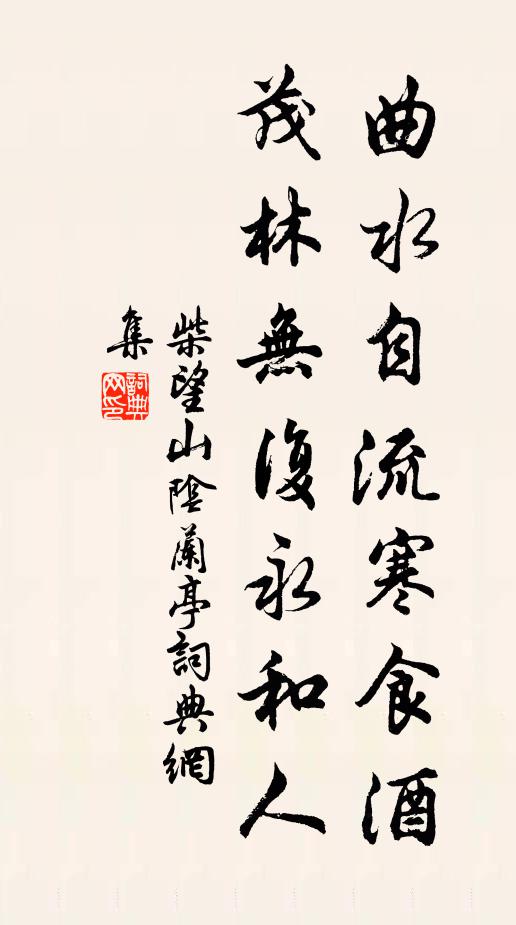 曲水自流寒食酒
茂林無復永和人
柴望山陰蘭亭詞典網
集
詞典
网印